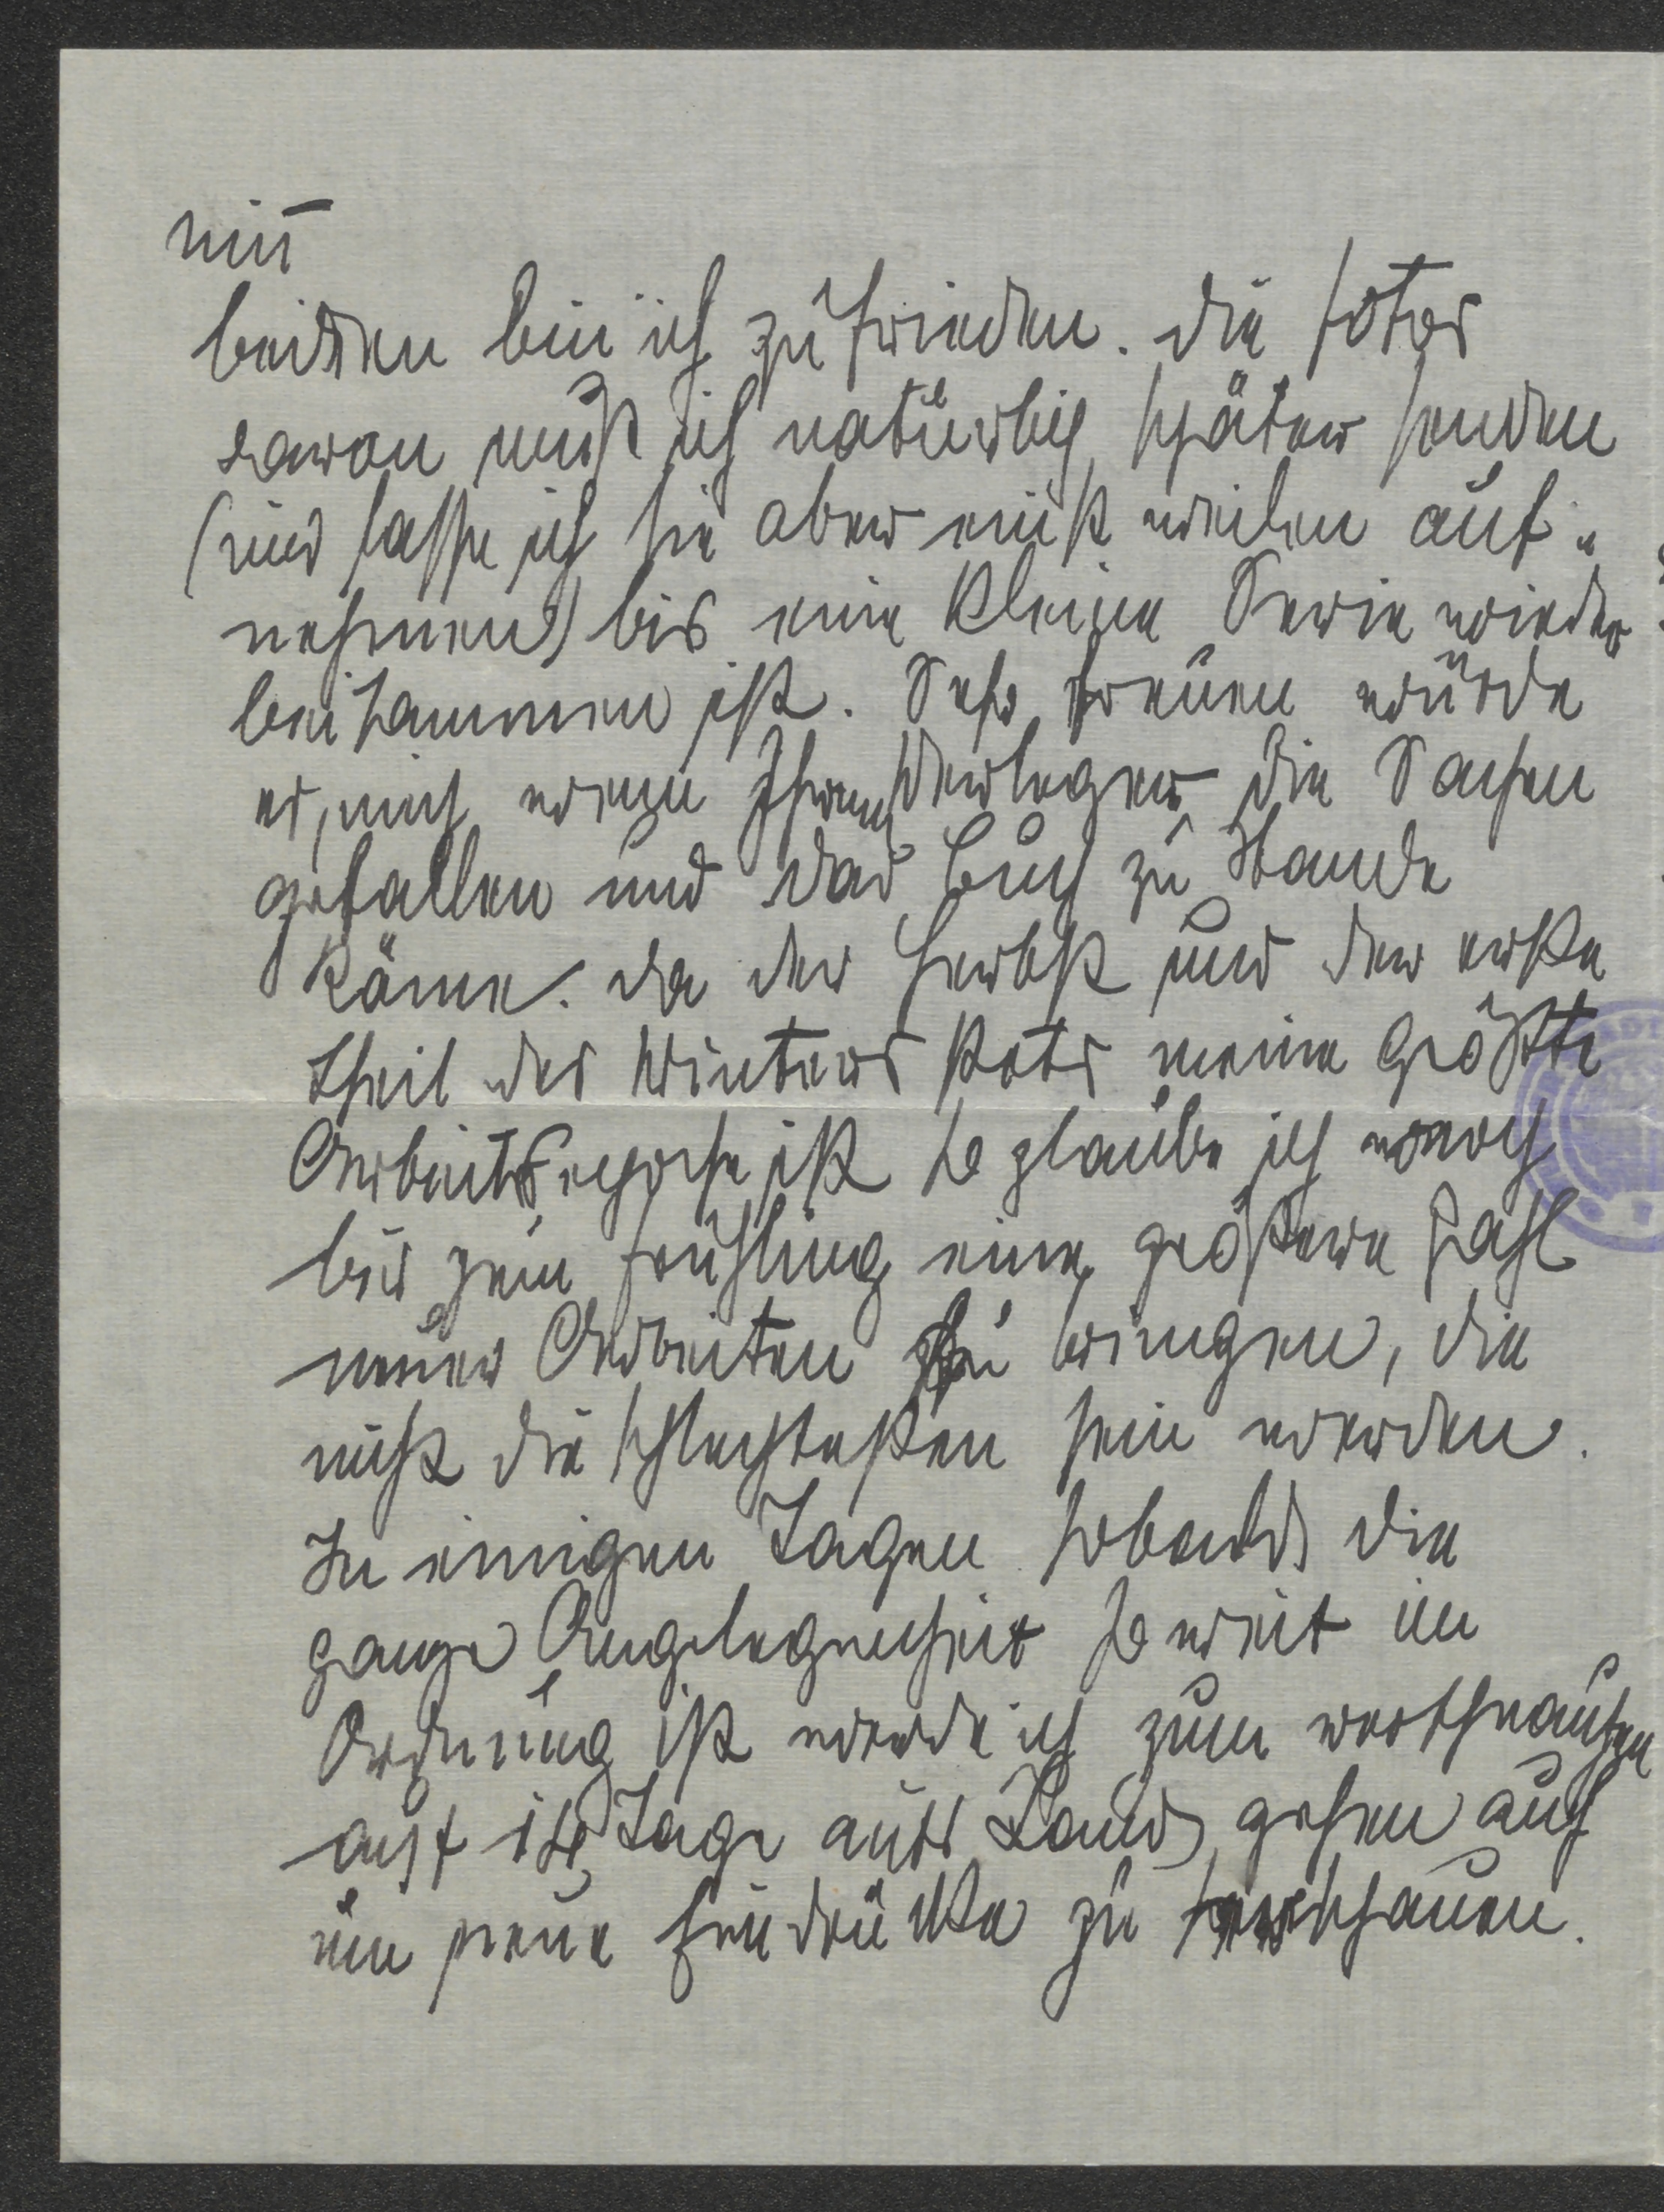 mit
beiden bin ich zufrieden. die fotos
davon muß ich natürlich später senden
(und lasse ich sie aber einst weilen auf-
nehmen) bis eine kleine Serie wieder
beisammen ist. Sehr freuen würde
es, mich wenn Ihrem Verleger die Sachen
gefallen und das Buch zu Stande
käme. da der Herbst und der erste
theil des Winters stets meine größte
Arbeitsepoche ist so glaube ich noch
bis zum Frühling eine größere Zahl
neuer Arbeiten zu bringen, die
nicht die schlechtesten sein werden.
In einigen Tagen sobald die
ganze Angelegenheit so weit in
Ordnung ist werde ich zum
auf Tage aufs Land gehen auch
um neue Eindrücke zu schauen.